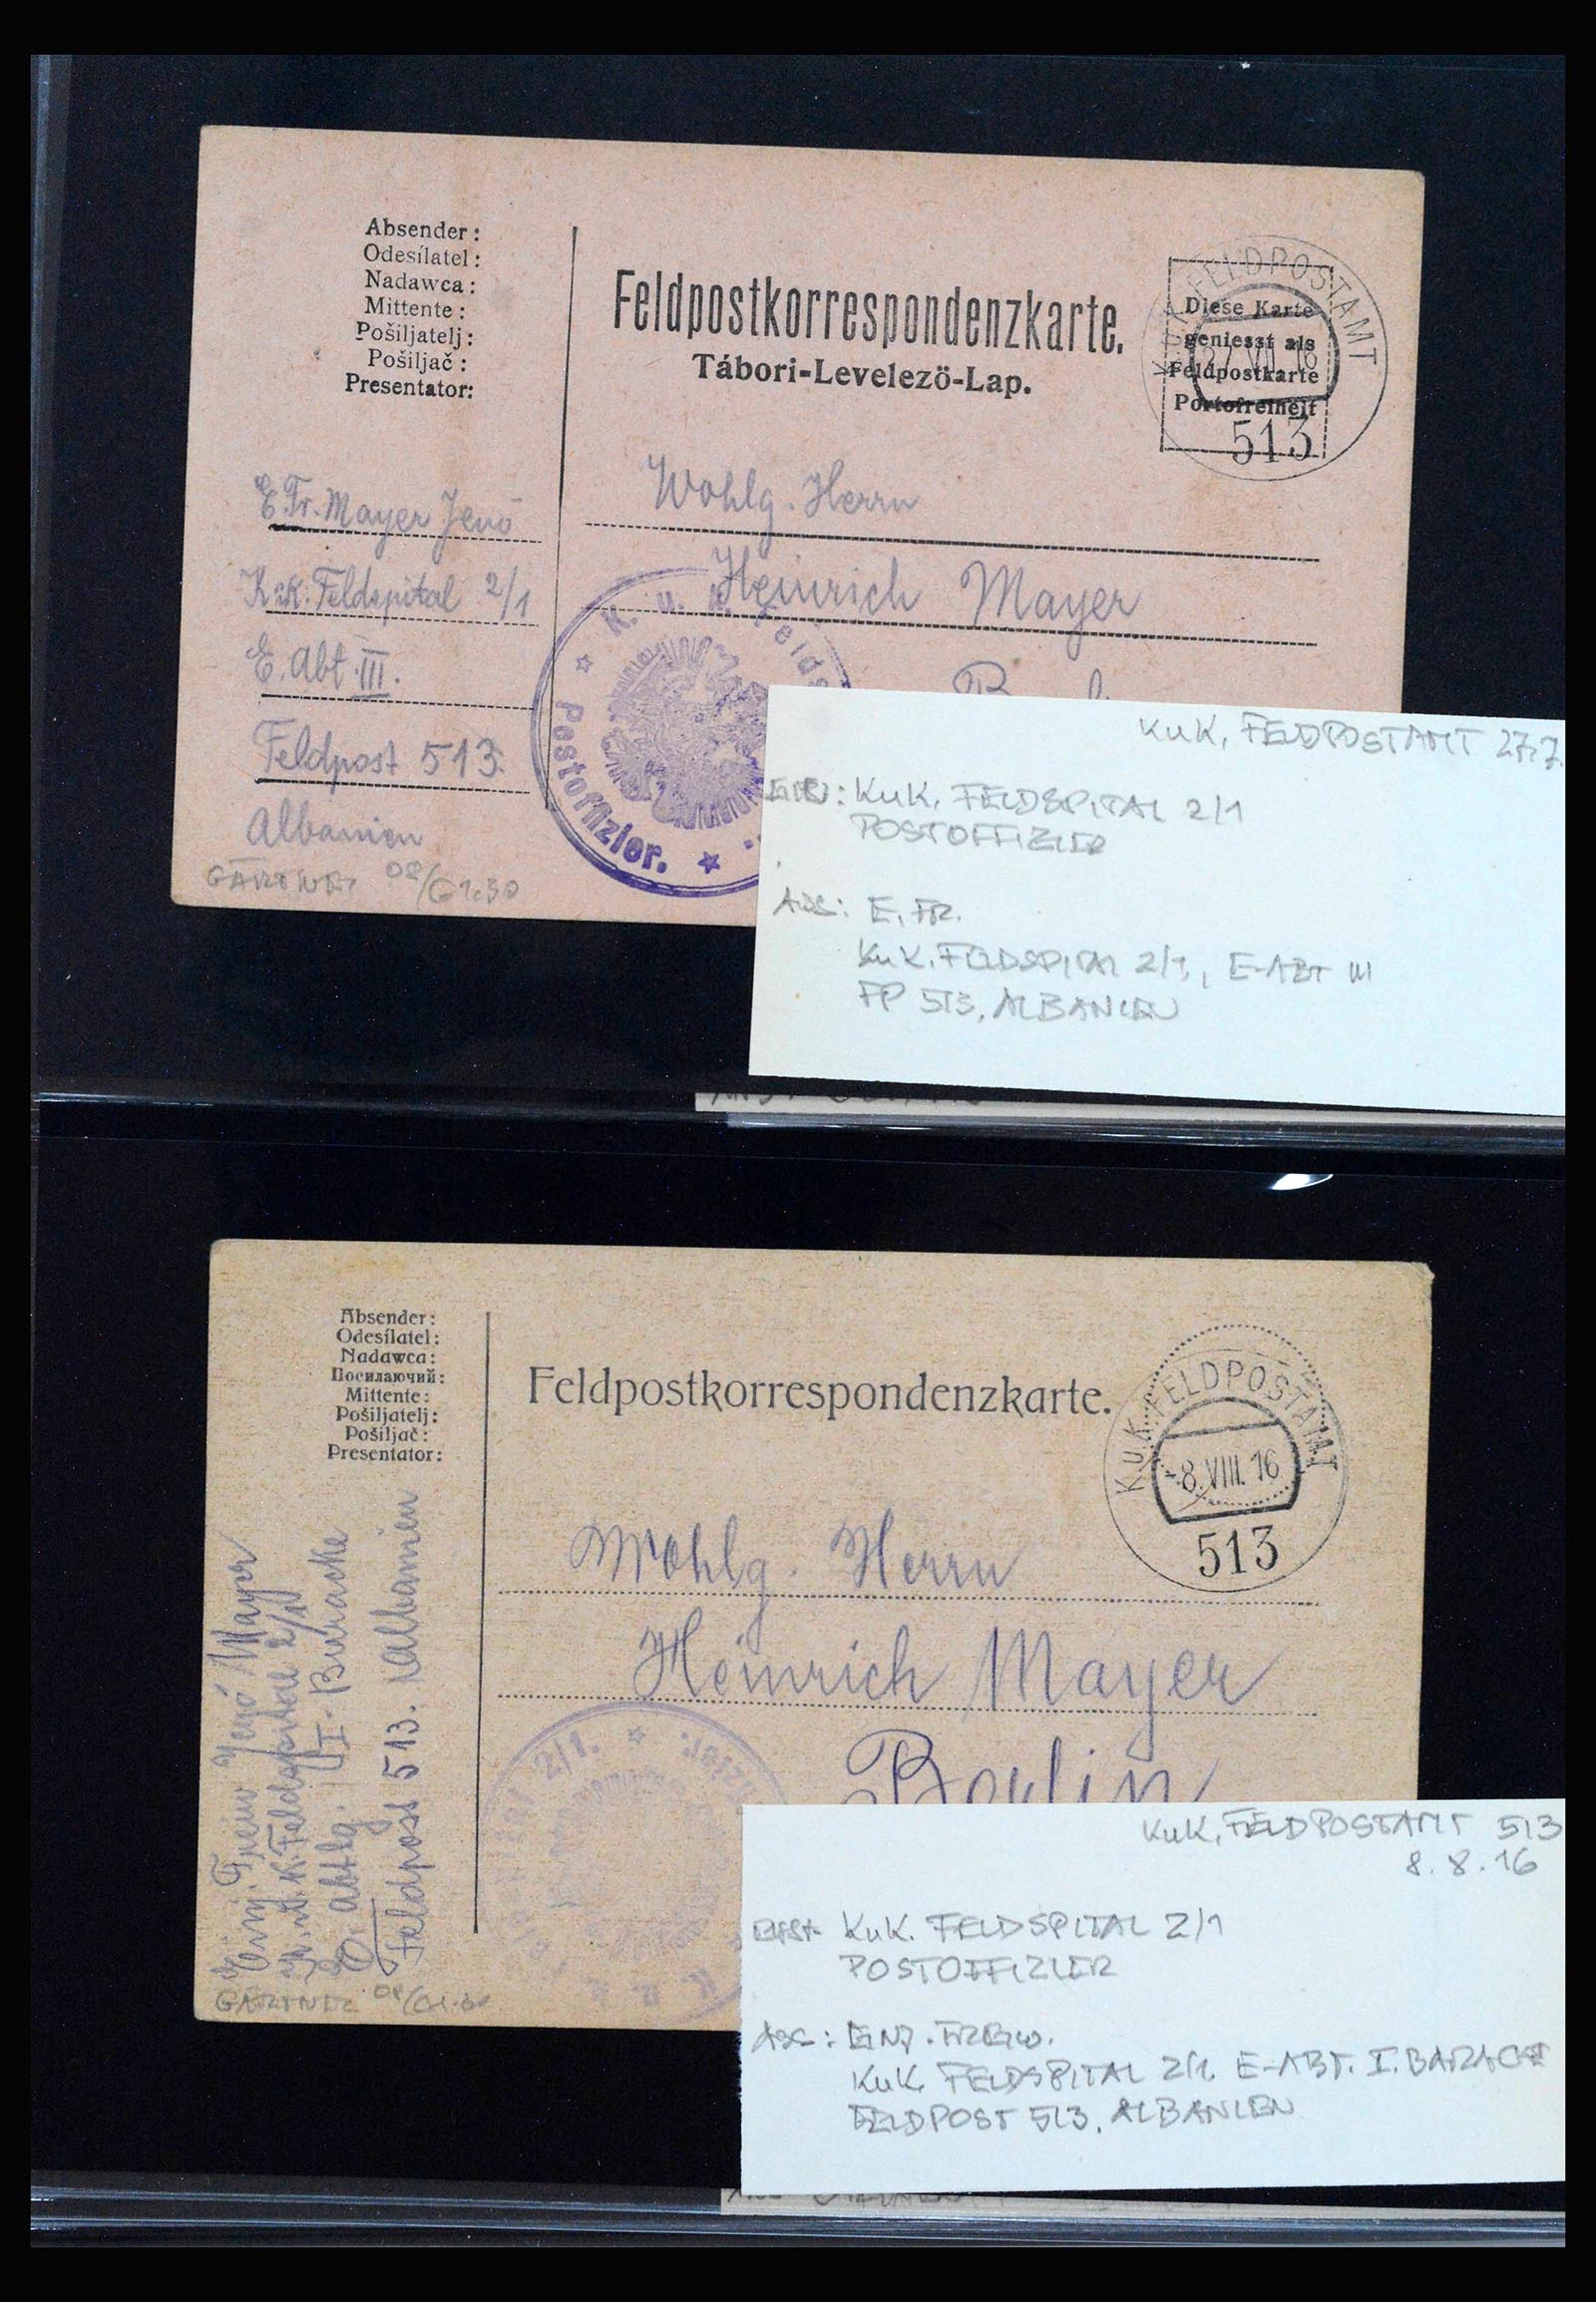 Absender:
Odesílatel:
Nadawca:
Mittente:
Pošiljatelj:
Pošiljač:
Presentator:
Feldpostkorrespondenzkarte.
Tábori-Levelező-Lap.
K.u.K. FELDPOSTAMT
27.VII.16
513
Diese Karte
geniesst als
Feldpostkarte
Portofreiheit
E. Fr. Mayer Jenő
K.u.K. Feldspital 2/1
E. Abt. III.
Feldpost 513.
Albanien
GÄRTNER 08/
Wohlg. Herrn
Heinrich Mayer
K. u. k. Felds
Postoffizier.
KuK. FELDPOSTAMT 27.7.
KuK. FELDSPITAL 2/1
POSTOFFIZIER
ABS: E. FR.
KuK. FELDSPITAL 2/1, E-ABT III
FP 513, ALBANIEN
Absender:
Odesílatel:
Nadawca:
Посилаючий:
Mittente:
Pošiljatelj:
Pošiljač:
Presentator:
Feldpostkorrespondenzkarte.
K.u.K. FELDPOSTAMT
-8.VIII.16
513
Einj. Freiw. Jenő Mayer
K.u.K. Feldspital 2/1
E. Abtlg. I. Baracke
Feldpost 513. Albanien
GÄRTNER 08/
Wohlg. Herrn
Heinrich Mayer
Berlin
2/1.
KuK. FELDPOSTAMT 513
8.8.16
KuK. FELDSPITAL 2/1
POSTOFFIZIER
ABS: EINJ. FREIW.
KuK. FELDSPITAL 2/1. E-ABT. I. BARACKE
FELDPOST 513, ALBANIEN